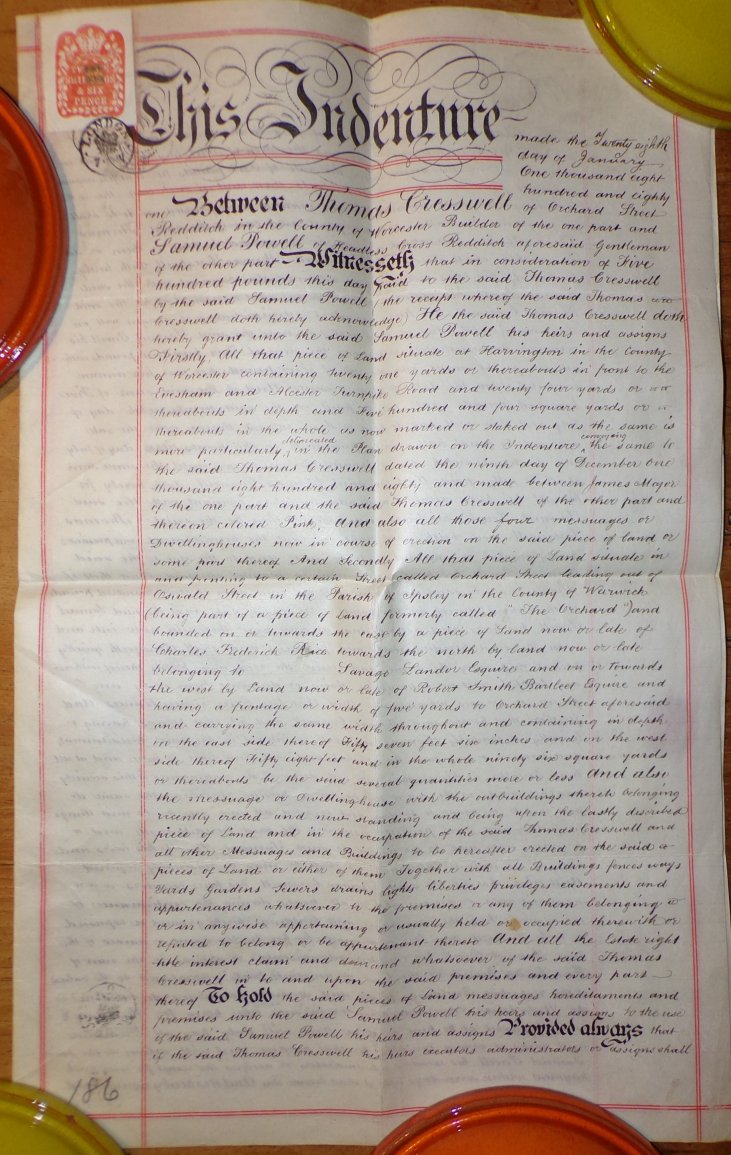 & SIX
PENCE
LONDON
This Indenture
made the Twenty eighth
day of January
One thousand eight
hundred and eighty
one Between Thomas Cresswell of Orchard Street
Redditch in the County of Worcester Builder of the one part and
Samuel Powell of Headless Cross Redditch aforesaid Gentleman
of the other part Witnesseth that in consideration of Five
hundred pounds this day paid to the said Thomas Cresswell
by the said Samuel Powell (the receipt whereof the said Thomas
Cresswell doth hereby acknowledge) He the said Thomas Cresswell doth
hereby grant unto the said Samuel Powell his heirs and assigns
Firstly All that piece of Land situate at Harvington in the County
of Worcester containing twenty one yards or thereabouts in front to the
Evesham and Alcester Turnpike Road and twenty four yards or
thereabouts in depth and Five hundred and four square yards or
thereabouts in the whole as now marked or staked out as the same is
more particularly delineated in the Plan drawn on the Indenture conveying the same to
the said Thomas Cresswell dated the ninth day of December One
thousand eight hundred and eighty and made between James Major
of the one part and the said Thomas Cresswell of the other part and
thereon colored Pink. And also all those four messuages or
Dwellinghouses now in course of erection on the said piece of land or
some part thereof And Secondly All that piece of Land situate in
and fronting to a certain Street called Orchard Street leading out of
Oswald Street in the Parish of Ipsley in the County of Warwick
(being part of a piece of Land formerly called "The Orchard") and
bounded on or towards the east by a piece of Land now or late of
Charles Frederick Rice towards the north by land now or late
belonging to Savage Landor Esquire and on or towards
the west by Land now or late of Robert Smith Bartleet Esquire and
having a frontage or width of five yards to Orchard Street aforesaid
and carrying the same width throughout and containing in depth
on the east side thereof Fifty seven feet six inches and on the west
side thereof Fifty eight feet and in the whole ninety six square yards
or thereabouts be the said several quantities more or less And also
the messuage or Dwellinghouse with the outbuildings thereto belonging
recently erected and now standing and being upon the lastly described
piece of Land and in the occupation of the said Thomas Cresswell and
all other Messuages and Buildings to be hereafter erected on the said
pieces of Land or either of them Together with all Buildings fences ways
Yards Gardens Sewers drains lights liberties privileges easements and
appurtenances whatsoever to the premises or any of them belonging
or in anywise appertaining or usually held or occupied therewith or
reputed to belong or be appurtenant thereto And all the Estate right
title interest claim and demand whatsoever of the said Thomas
Cresswell in to and upon the said premises and every part
thereof To hold the said pieces of Land messuages hereditaments and
premises unto the said Samuel Powell his heirs and assigns to the use
of the said Samuel Powell his heirs and assigns Provided always that
if the said Thomas Cresswell his heirs executors administrators or assigns shall
186